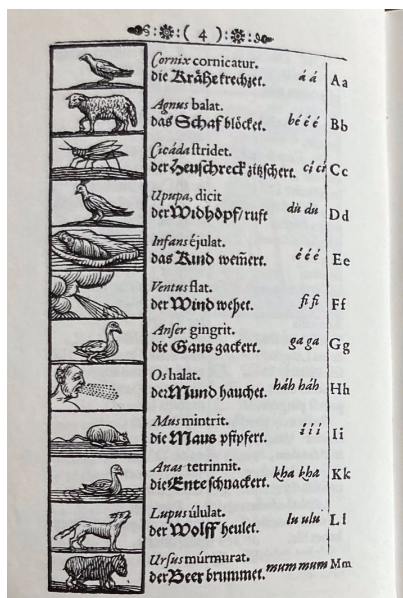 ( 4 )
Cornix cornicatur.
die Krähe krechzet. á á Aa
Agnus balat.
das Schaf blöcket. bé é é Bb
Cicáda stridet.
der Heuschreck zitzschert. cí cí Cc
Upupa, dicit
der Widhopf/ ruft du du Dd
Infans éjulat.
das Kind wem̃ert. é é é Ee
Ventus flat.
der Wind wehet. fi fi Ff
Anser gingrit.
die Gans gackert. ga ga Gg
Os halat.
der Mund hauchet. háh háh Hh
Mus mintrit.
die Maus pfipfert. í í í Ii
Anas tetrinnit.
die Ente schnackert. kha kha Kk
Lupus úlulat.
der Wolff heulet. lu ulu Ll
Ursus múrmurat.
der Beer brummet. mum mum Mm